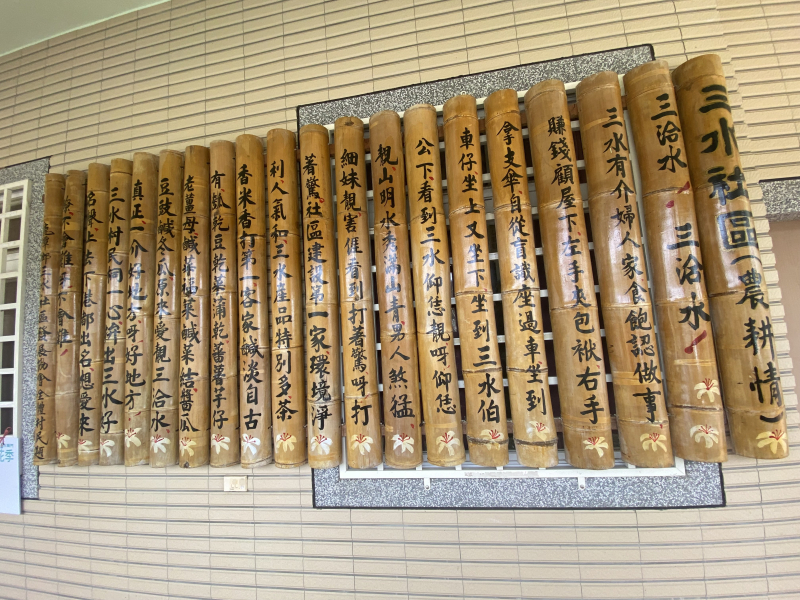 三水社區（農耕情）
三洽水　三洽水
三水有介婦人家食飽認做事
賺錢顧屋下左手夾包袱右手
拿支傘自從盲識座過車坐到
車仔坐上又坐下坐到三水伯
公下看到三水仰恁靚呀仰恁
靚山明水秀滿山青男人煞猛
細妹靚害𠊎看到打著驚呀打
著驚社區建設第一家環境淨
利人氣和三水產品特別多茶
香米香打第一客家鹹淡自古
有豇豆乾菜蒲乾蕃薯芋仔
老薑母鹹菜鹹菜結醬瓜
豆豉鹹冬瓜原來愛觀三洽水
真正一介好地方呀好地方
三水村民同一心踭出三水好
名聲上崎下港都出名想愛來